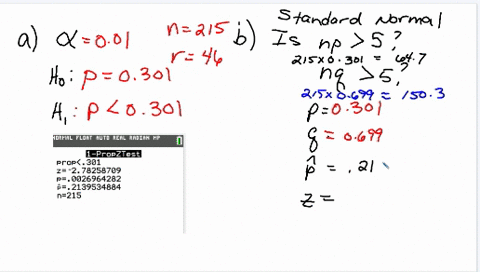 a) α = 0.01
n = 215
r = 46
H₀: p = 0.301
H₁: p < 0.301
NORMAL FLOAT AUTO REAL RADIAN MP
1-PropZTest
prop<.301
z=-2.78258709
p=.0026964282
p̂=.2139534884
n=215
b) Standard Normal
Is np > 5?
215 x 0.301 = 64.7
nq > 5?
215 x 0.699 = 150.3
p = 0.301
q = 0.699
p̂ = .21
z =